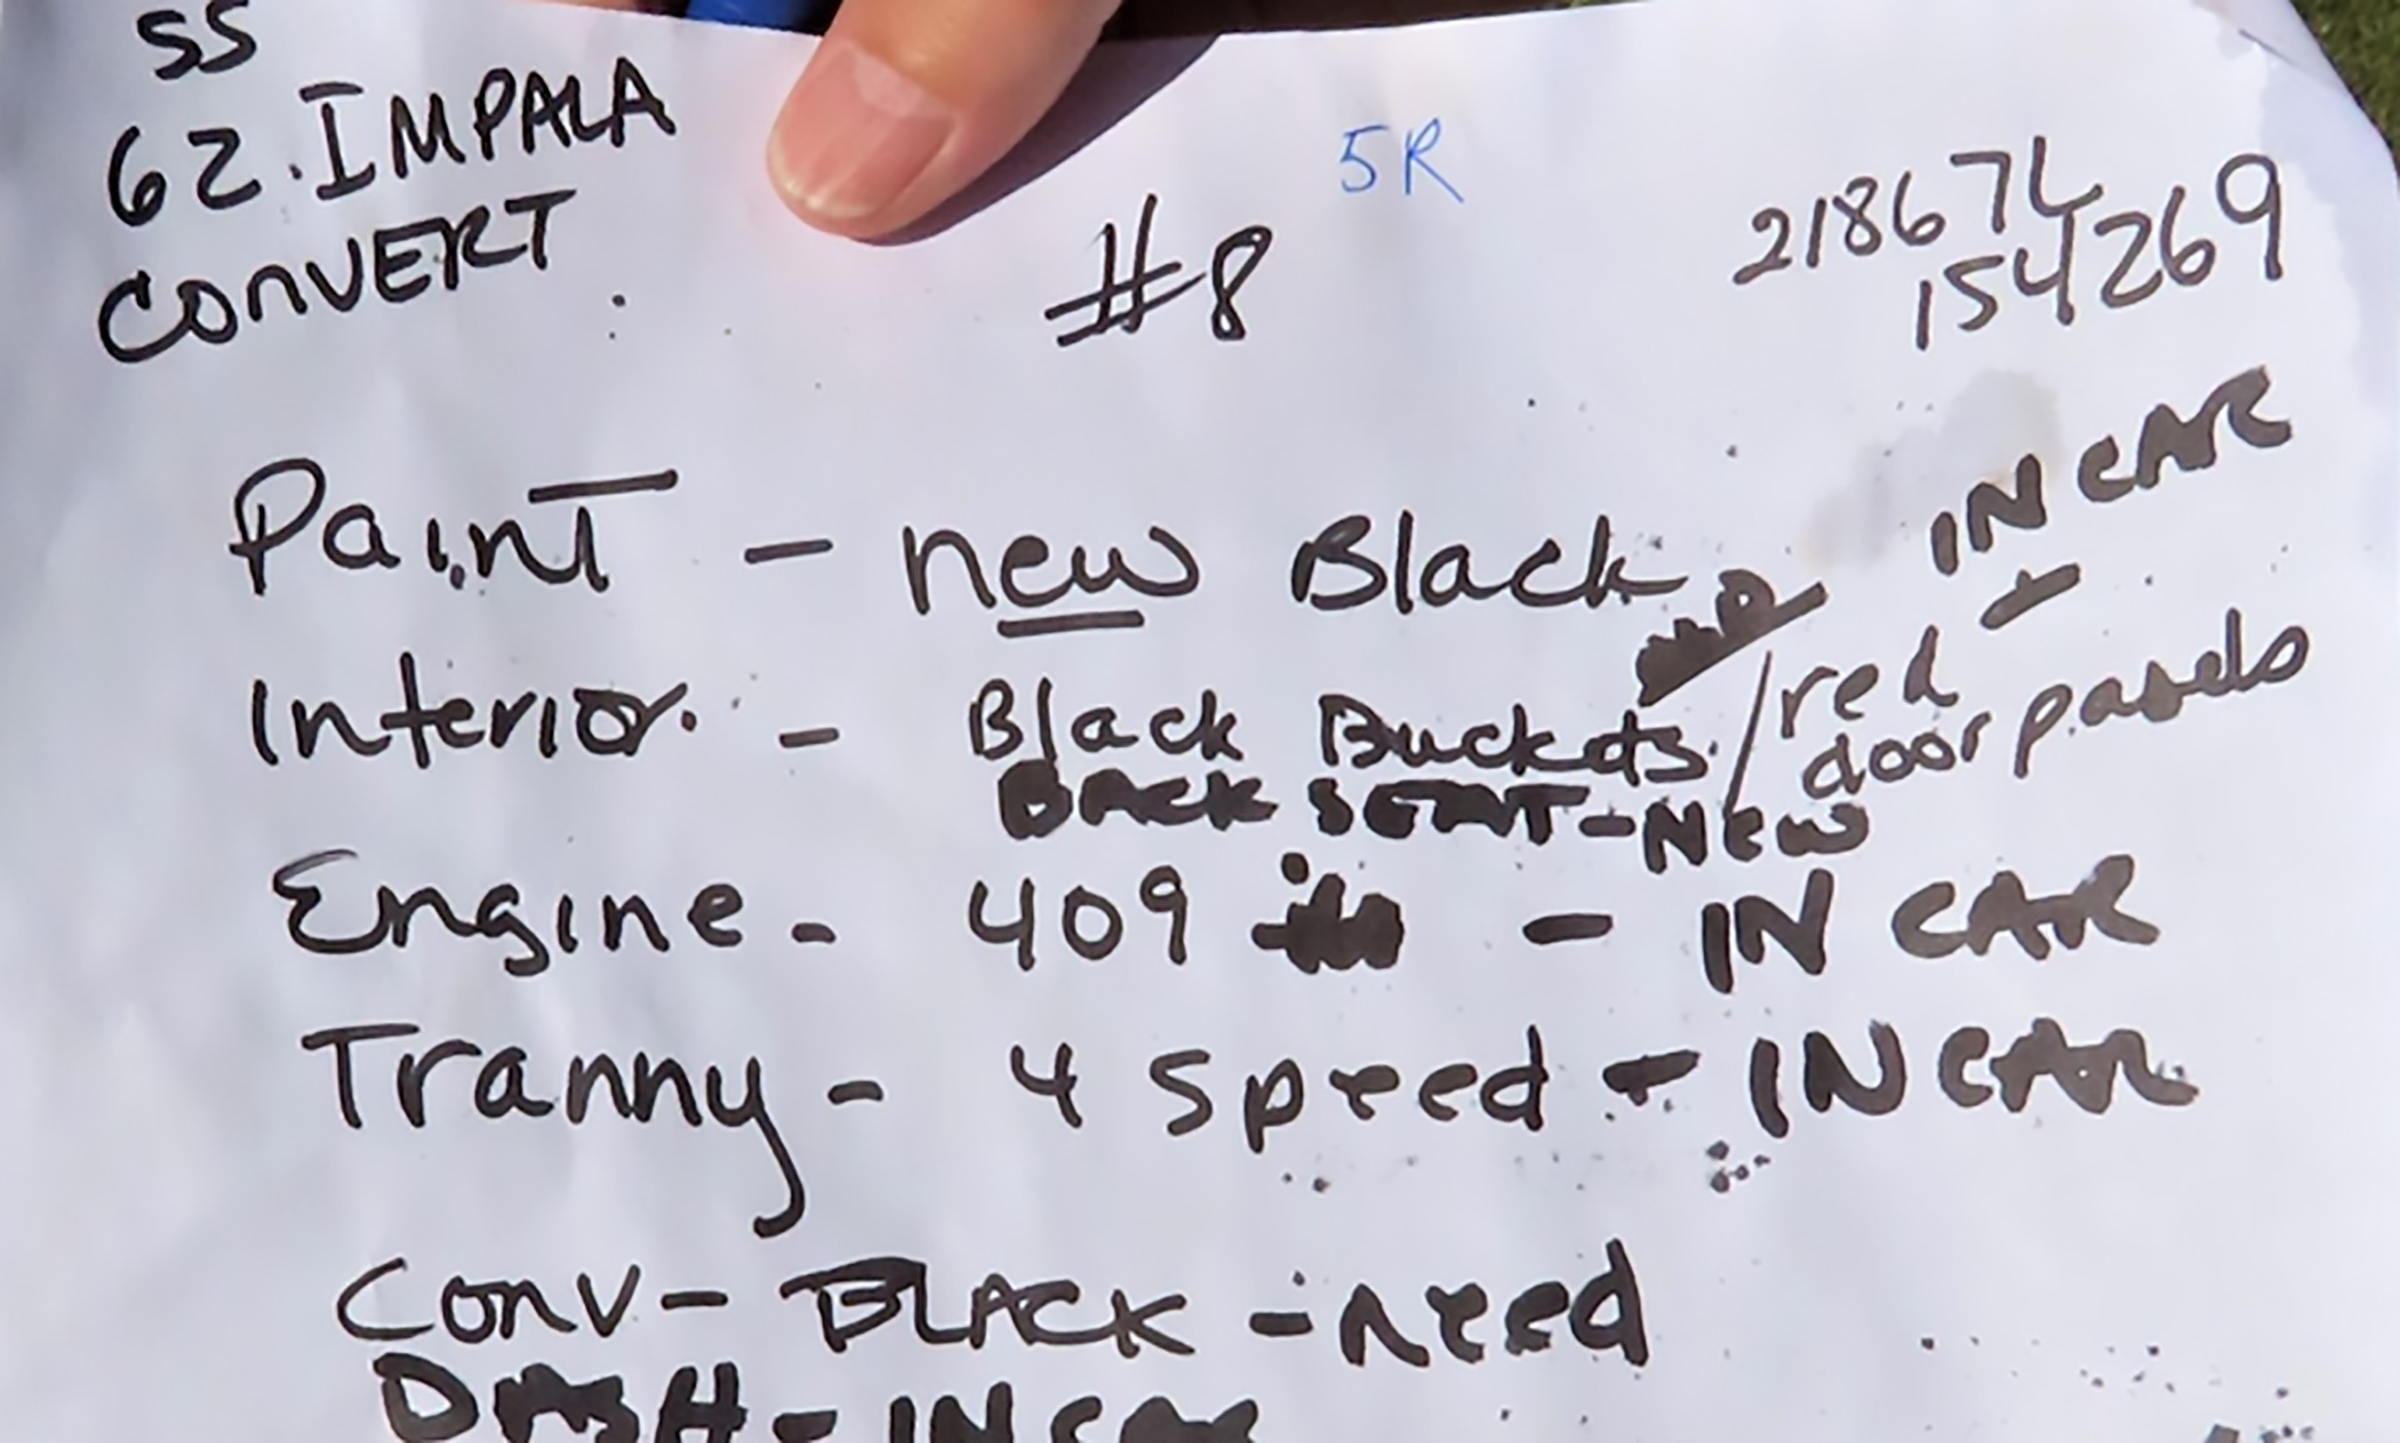 SS
62. IMPALA
CONVERT
#8
5R
21867L
154269
Paint - new Black
IN CAR
Interior. - Black Buckets. / red door panels
BACK SEAT - New
Engine - 409 - IN CAR
Tranny - 4 Speed - IN CAR
Conv - BLACK - need
DASH - IN CAR